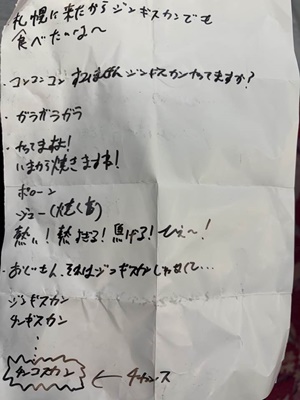 札幌に来たからジンギスカンでも
食べたいな〜
・コンコンコン すみませんジンギスカンやってますか?
・ガラガラガラ
・やってますよ!
いまから焼きますね!
ボローン
ジュー(焼く音)
熱い! 熱すぎる! 焦げる! ひぇ〜!
・おじさん、それはジンギスカンじゃなくて…
ジンギスカン
タンギスカン
⋮
タンコスカン ←